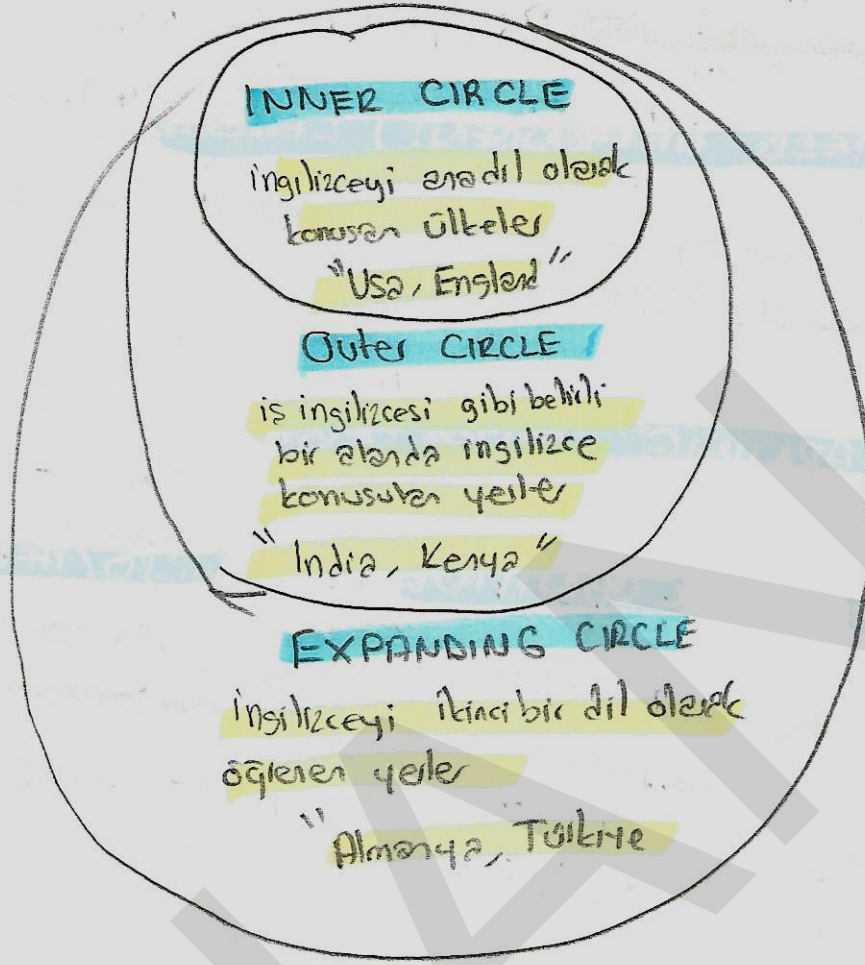 INNER CIRCLE
ingilizceyi anadil olarak
konuşan ülkeler
"Usa, England"
Outer CIRCLE
iş ingilizcesi gibi belirli
bir alanda ingilizce
konusulan yerler
"India, Kenya"
EXPANDING CIRCLE
ingilizceyi ikinci bir dil olarak
öğrenen yerler
"Almanya, Türkiye